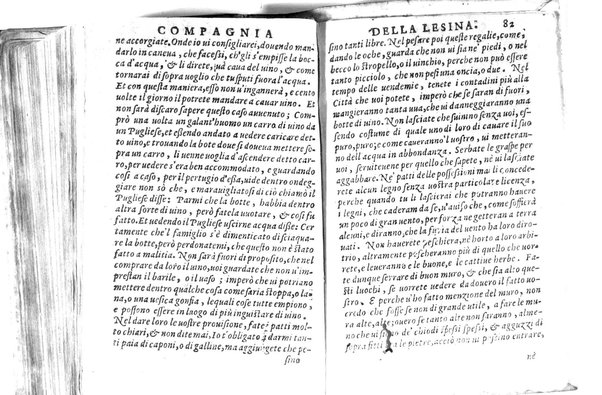 COMPAGNIA
ne accorgiate. Onde io vi consigliarei, douendo man-
darlo in caneua, che facessi, ch'egli s'empisse la boc-
ca d'acqua, & li direte, và caua del vino, & come
tornarai di sopra voglio che tu sputi fuora l'acqua.
Et con questa maniera, esso non v'ingannerà, e cento
volte il giorno il potrete mandare a cauar vino. Et
non sarà discaro sapere questo caso auuenuto; Com-
prò una volta un galant'huomo un carro di vino da
un Pugliese, et essendo andato a vedere caricare det-
to vino, e trouando la bote doue si doueua mettere so-
pra un carro, li venne voglia d'ascendere detto car-
ro, per vedere s'era ben accommodato, e guardando
così a caso, per il pertugio d'essa, vide dentro ondeg-
giare non sò che, e marauigliatosi di ciò chiamò il
Pugliese disse: Parmi che la botte, habbia dentro
altra sorte di vino, però fatela vuotare, & così fu
fatto. Et vedendo il Pugliese vscirne acqua disse: Cer-
tamente che'l famiglio s'è dimenticato di sciaqua-
re la botte, però perdonatemi, che questo non è stato
fatto a malitia. Non sarà fuori di proposito, che nel
comprare da loro il vino, voi guardate che non v'im-
prestan il barile, o il vaso; imperò che vi potriano
mettere dentro qualche cosa come saria stoppa, o la-
na, o una vesica gonfia, le quali cose tutte empiono;
e possono essere in luogo di più ingiustare di vino.
Nel dare loro le vostre prouisione, fate i patti mol-
to chiari, & non dite mai. Io t'obligato a darmi tan-
ti paia di caponi, o di galline, ma aggiungete che pe-
sino
DELLA LESINA. 82
sino tanti libre. Nel pesare poi queste regalie, come,
dando le oche, guarda che non vi sia ne' piedi, o nel
becco lo stropello, o il vinchio, perche non può essere
tanto picciolo, che non pesi una oncia, o due. Nel
tempo delle vendemie, tenete i contadini più alla
Città che voi potete, imperò che se saran di fuori,
mangieranno tanta vua, che vi danneggiaranno una
botte di vino. Non lasciate che suinino senza voi, es-
sendo costume di quale uno di loro di cauare il suo
puro, puro; e come caueranno il vostro, vi metteran-
no dell'acqua in abbondanza. Serbate le graspe per
voi, seruirete per quello che sapete, nè vi lasciate
aggabbare. Ne' patti delle possessioni mai li concede-
rete alcun legno senza vostra particolare licenza,
perche quando tu li lasciarai che potranno hauere
i legni, che caderam da se, v'auiso che, come soffierà
un poco di gran vento, per forza ne getteran a terra
alcuni, e diranno, che la furia del vento ha loro diro-
uati. Non hauerete peschiera, nè horto a loro arbi-
trio, altramente poseranno più di quello che vor-
rete, e leueranno e le buone, e le cattiue herbe. Fa-
te dunque serrare di buon muro, & che sia alto que-
sti luochi, se vorrete vedere da douero il fatto vo-
stro. E perche vi ho fatto menzione del muro, non
credo che fosse se non di grande vtile, a fare le mu-
ra alte, alte; ouero se tanto alte non saranno, alme-
no che vi sieno de' chiodi spessi spessi, & agguzzi di
sopra fitti tra le pietre, acciò non vi possino entrare,
nè